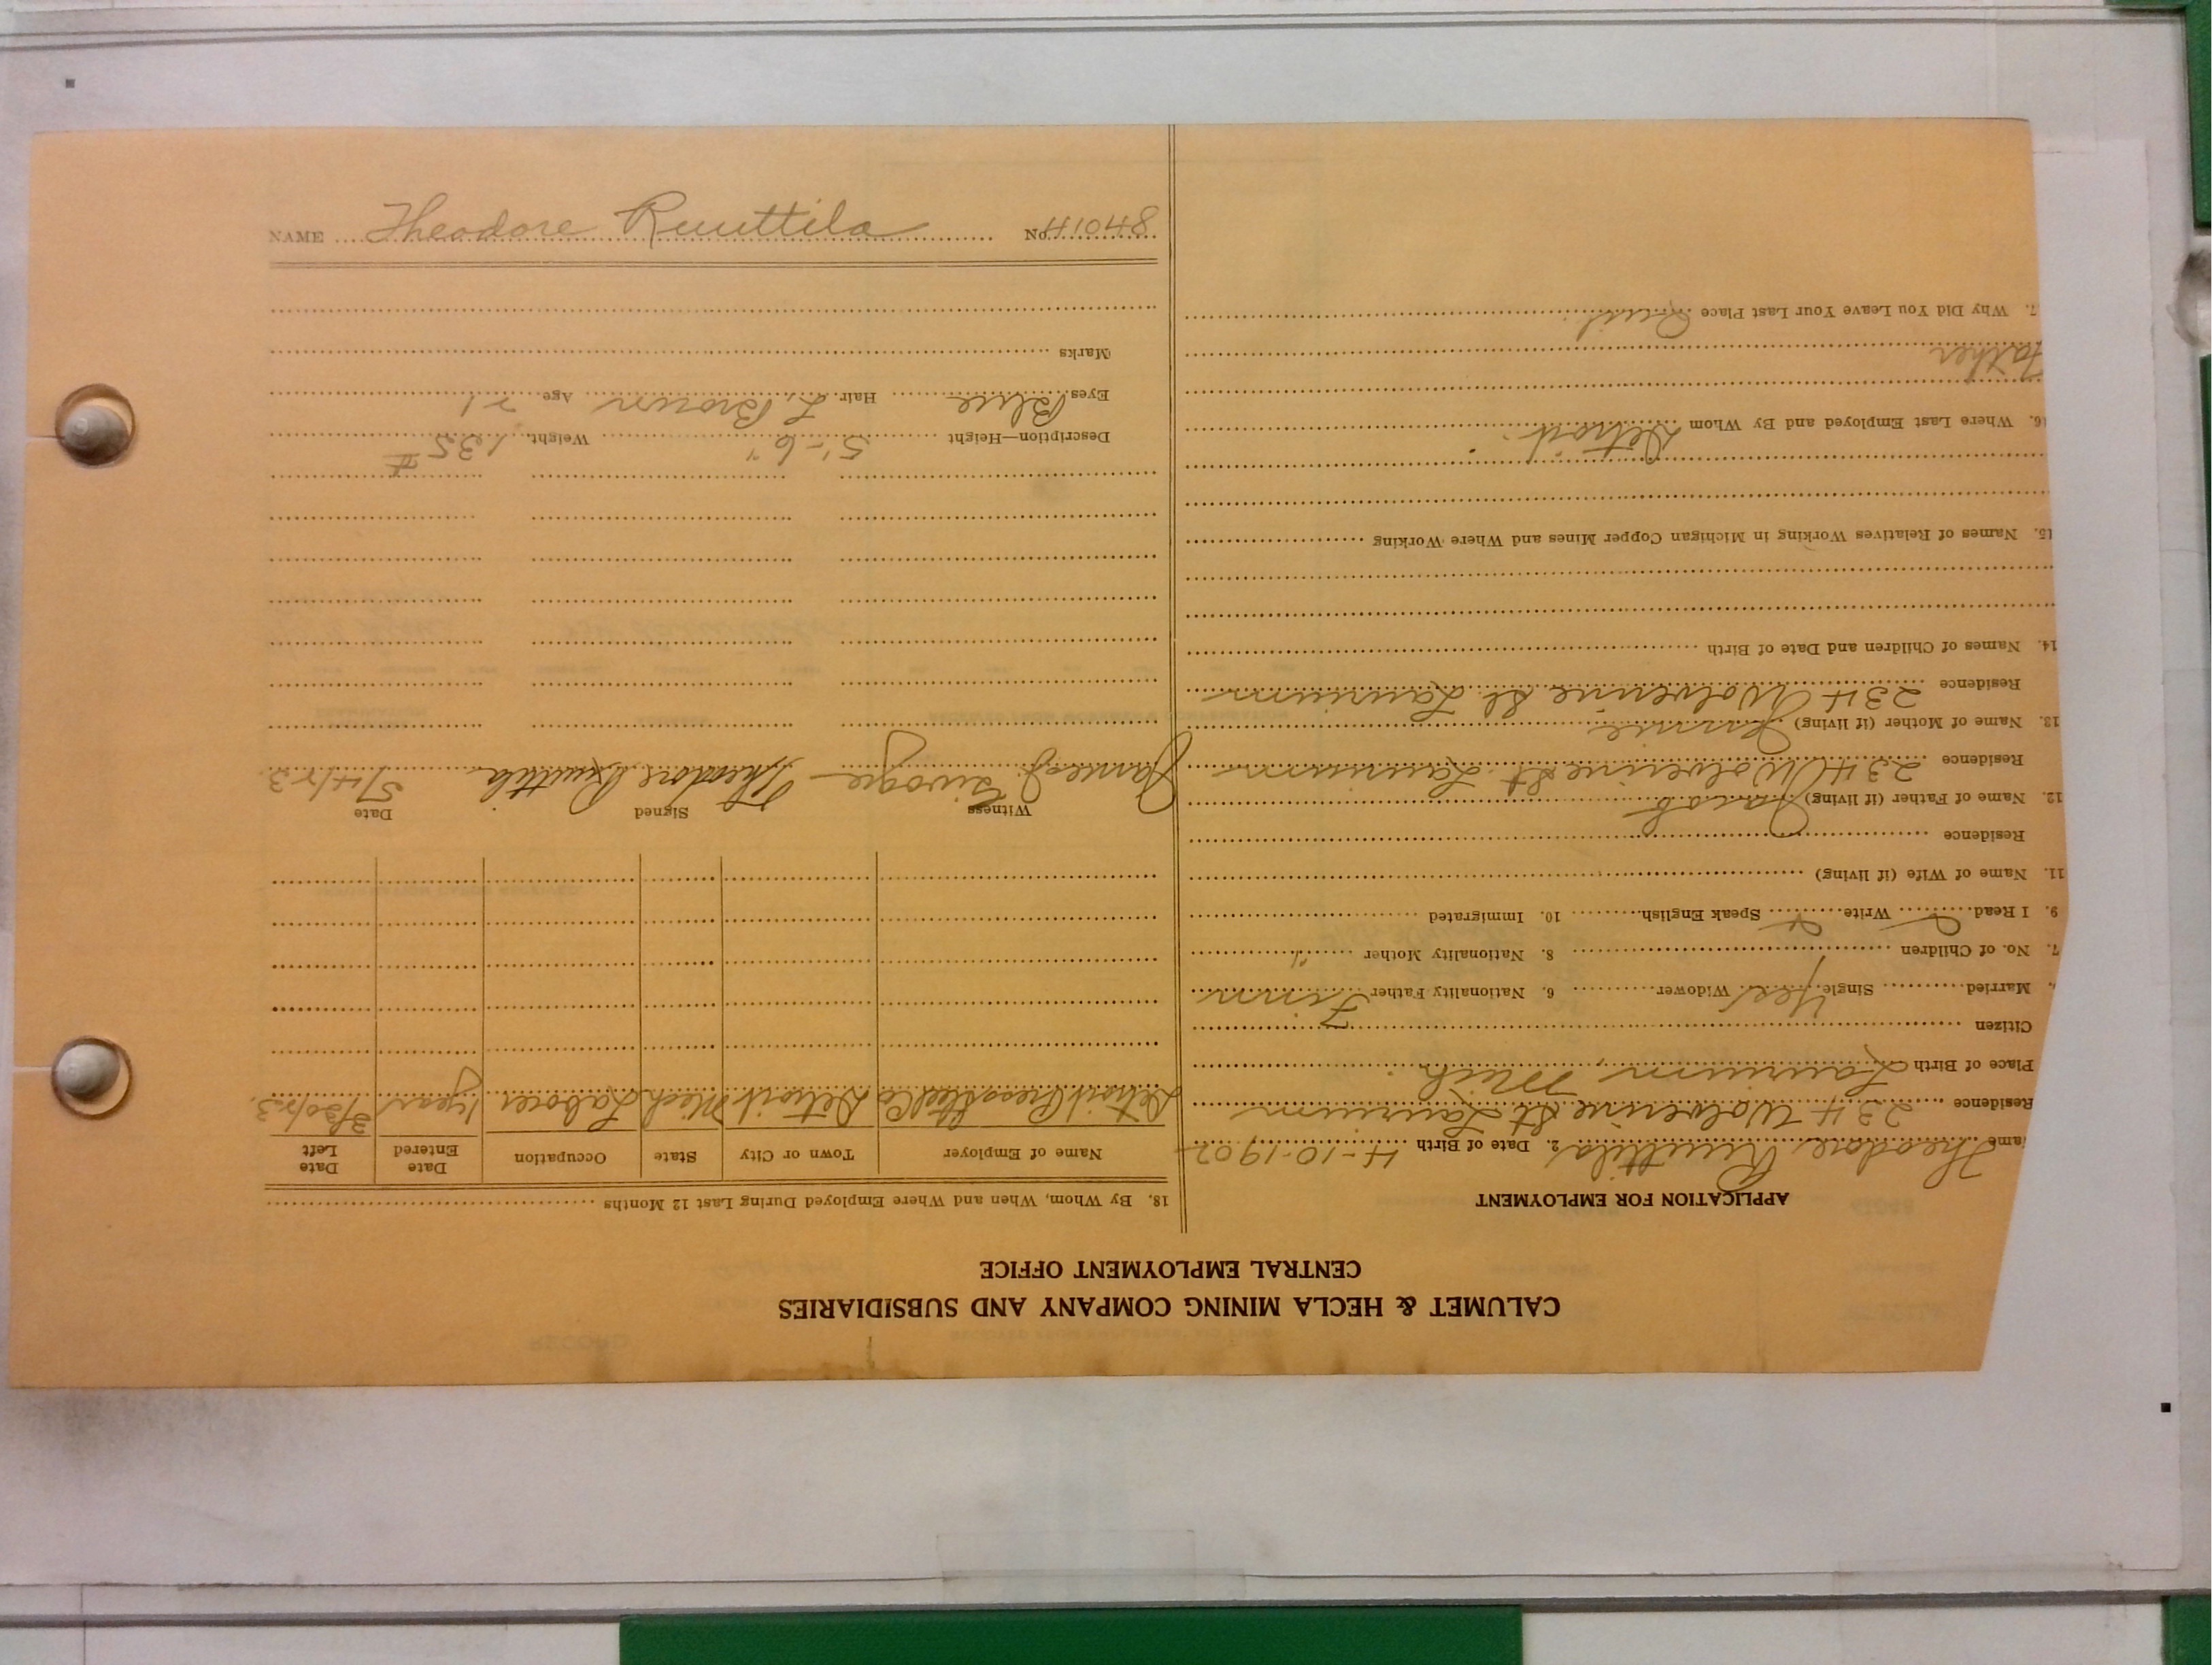 NAME Theodore Ruuttila No. 41048
CALUMET & HECLA MINING COMPANY AND SUBSIDIARIES
CENTRAL EMPLOYMENT OFFICE
APPLICATION FOR EMPLOYMENT
ame Theodore Ruuttila 2. Date of Birth 4-10-1902
Residence 234 Wolverine St Laurium
Place of Birth Laurium, Mich
Citizen
Married Single Yes Widower 6. Nationality Father Finn
7. No. of Children 8. Nationality Mother "
9. I Read Write Speak English 10. Immigrated
11. Name of Wife (if living)
Residence
12. Name of Father (if living) Jacob
Residence 234 Wolverine St Laurium
13. Name of Mother (if living) Jennie
Residence 234 Wolverine St Laurium
14. Names of Children and Date of Birth
15. Names of Relatives Working in Michigan Copper Mines and Where Working
16. Where Last Employed and By Whom Detroit
Father
7. Why Did You Leave Your Last Place Quit
18. By Whom, When and Where Employed During Last 12 Months
Name of Employer Town or City State Occupation Date Entered Date Left
Detroit Press Steel Co Detroit Mich Laborer 1 year 3/30/23
Witness Signed Date
James Theodore Ruuttila 5/4/23
Description—Height 5'-6" Weight 135 #
Eyes Blue Hair L. Brown Age 21
Marks